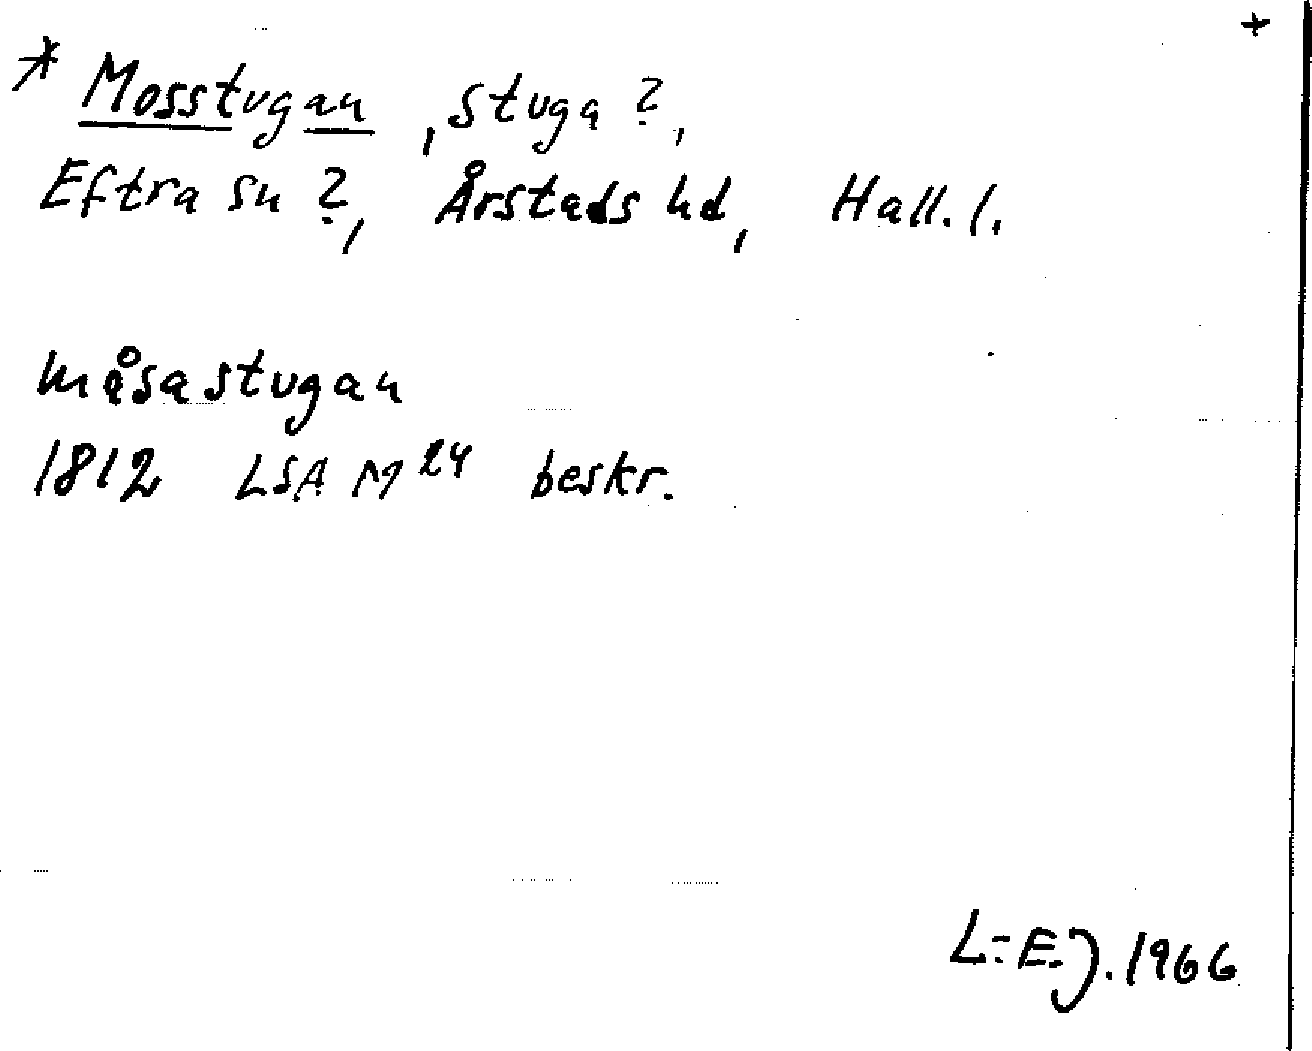 +
* Mosstugan, stuga?,
Eftra sn?, Årstads hd, Hall. l.
måsastugan
1812 LSA M24 beskr.
L-E.J. 1966